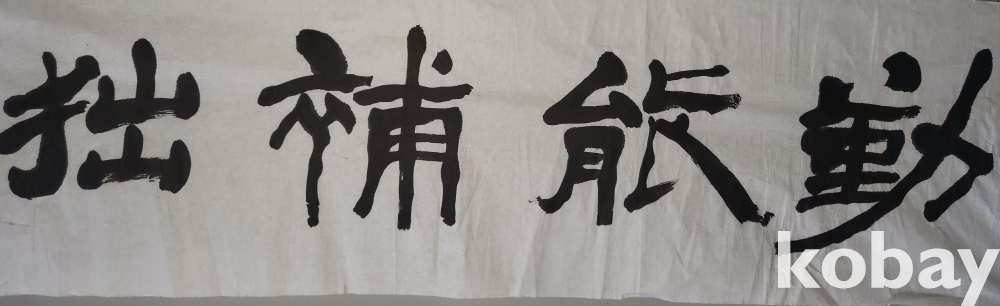 勤能補拙
kobay